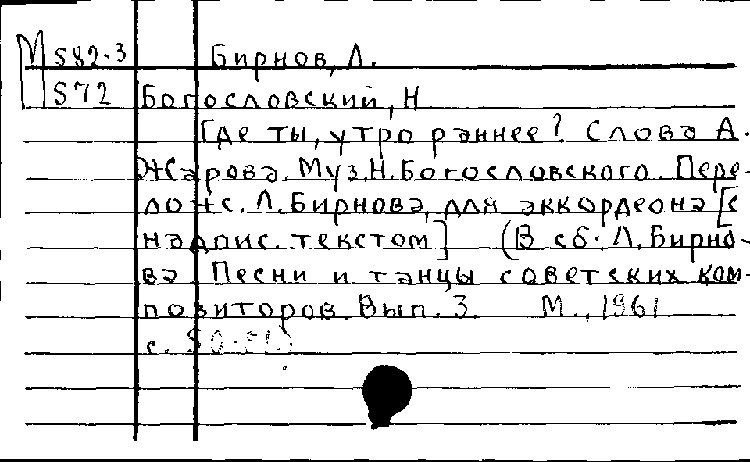 М S82-3 Бирнов, Л.
S72 Богословский, Н
Где ты, утро раннее? Слова А.
Жарова. Муз. Н. Богословского. Пере-
лож. Л. Бирнова, для аккордеона [с
надпис. текстом] (В сб. Л. Бирно-
ва Песни и танцы советских ком-
позиторов. Вып. 3. М., 1961
с.